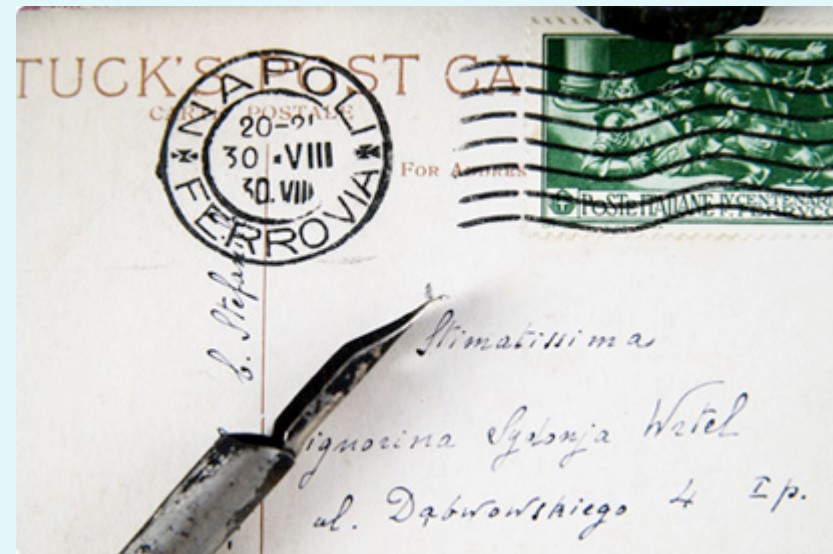 TUCK'S POST CA
CARTE POSTALE
NAPOLI
20-21
30 · VIII
30. VIII
FERROVIA
FOR ADDRES
POSTE ITALIANE IV CENTENAR
Stimatissima
ignorina Sydonja Wrtel
ul. Dąbrowskiego 4 I p.